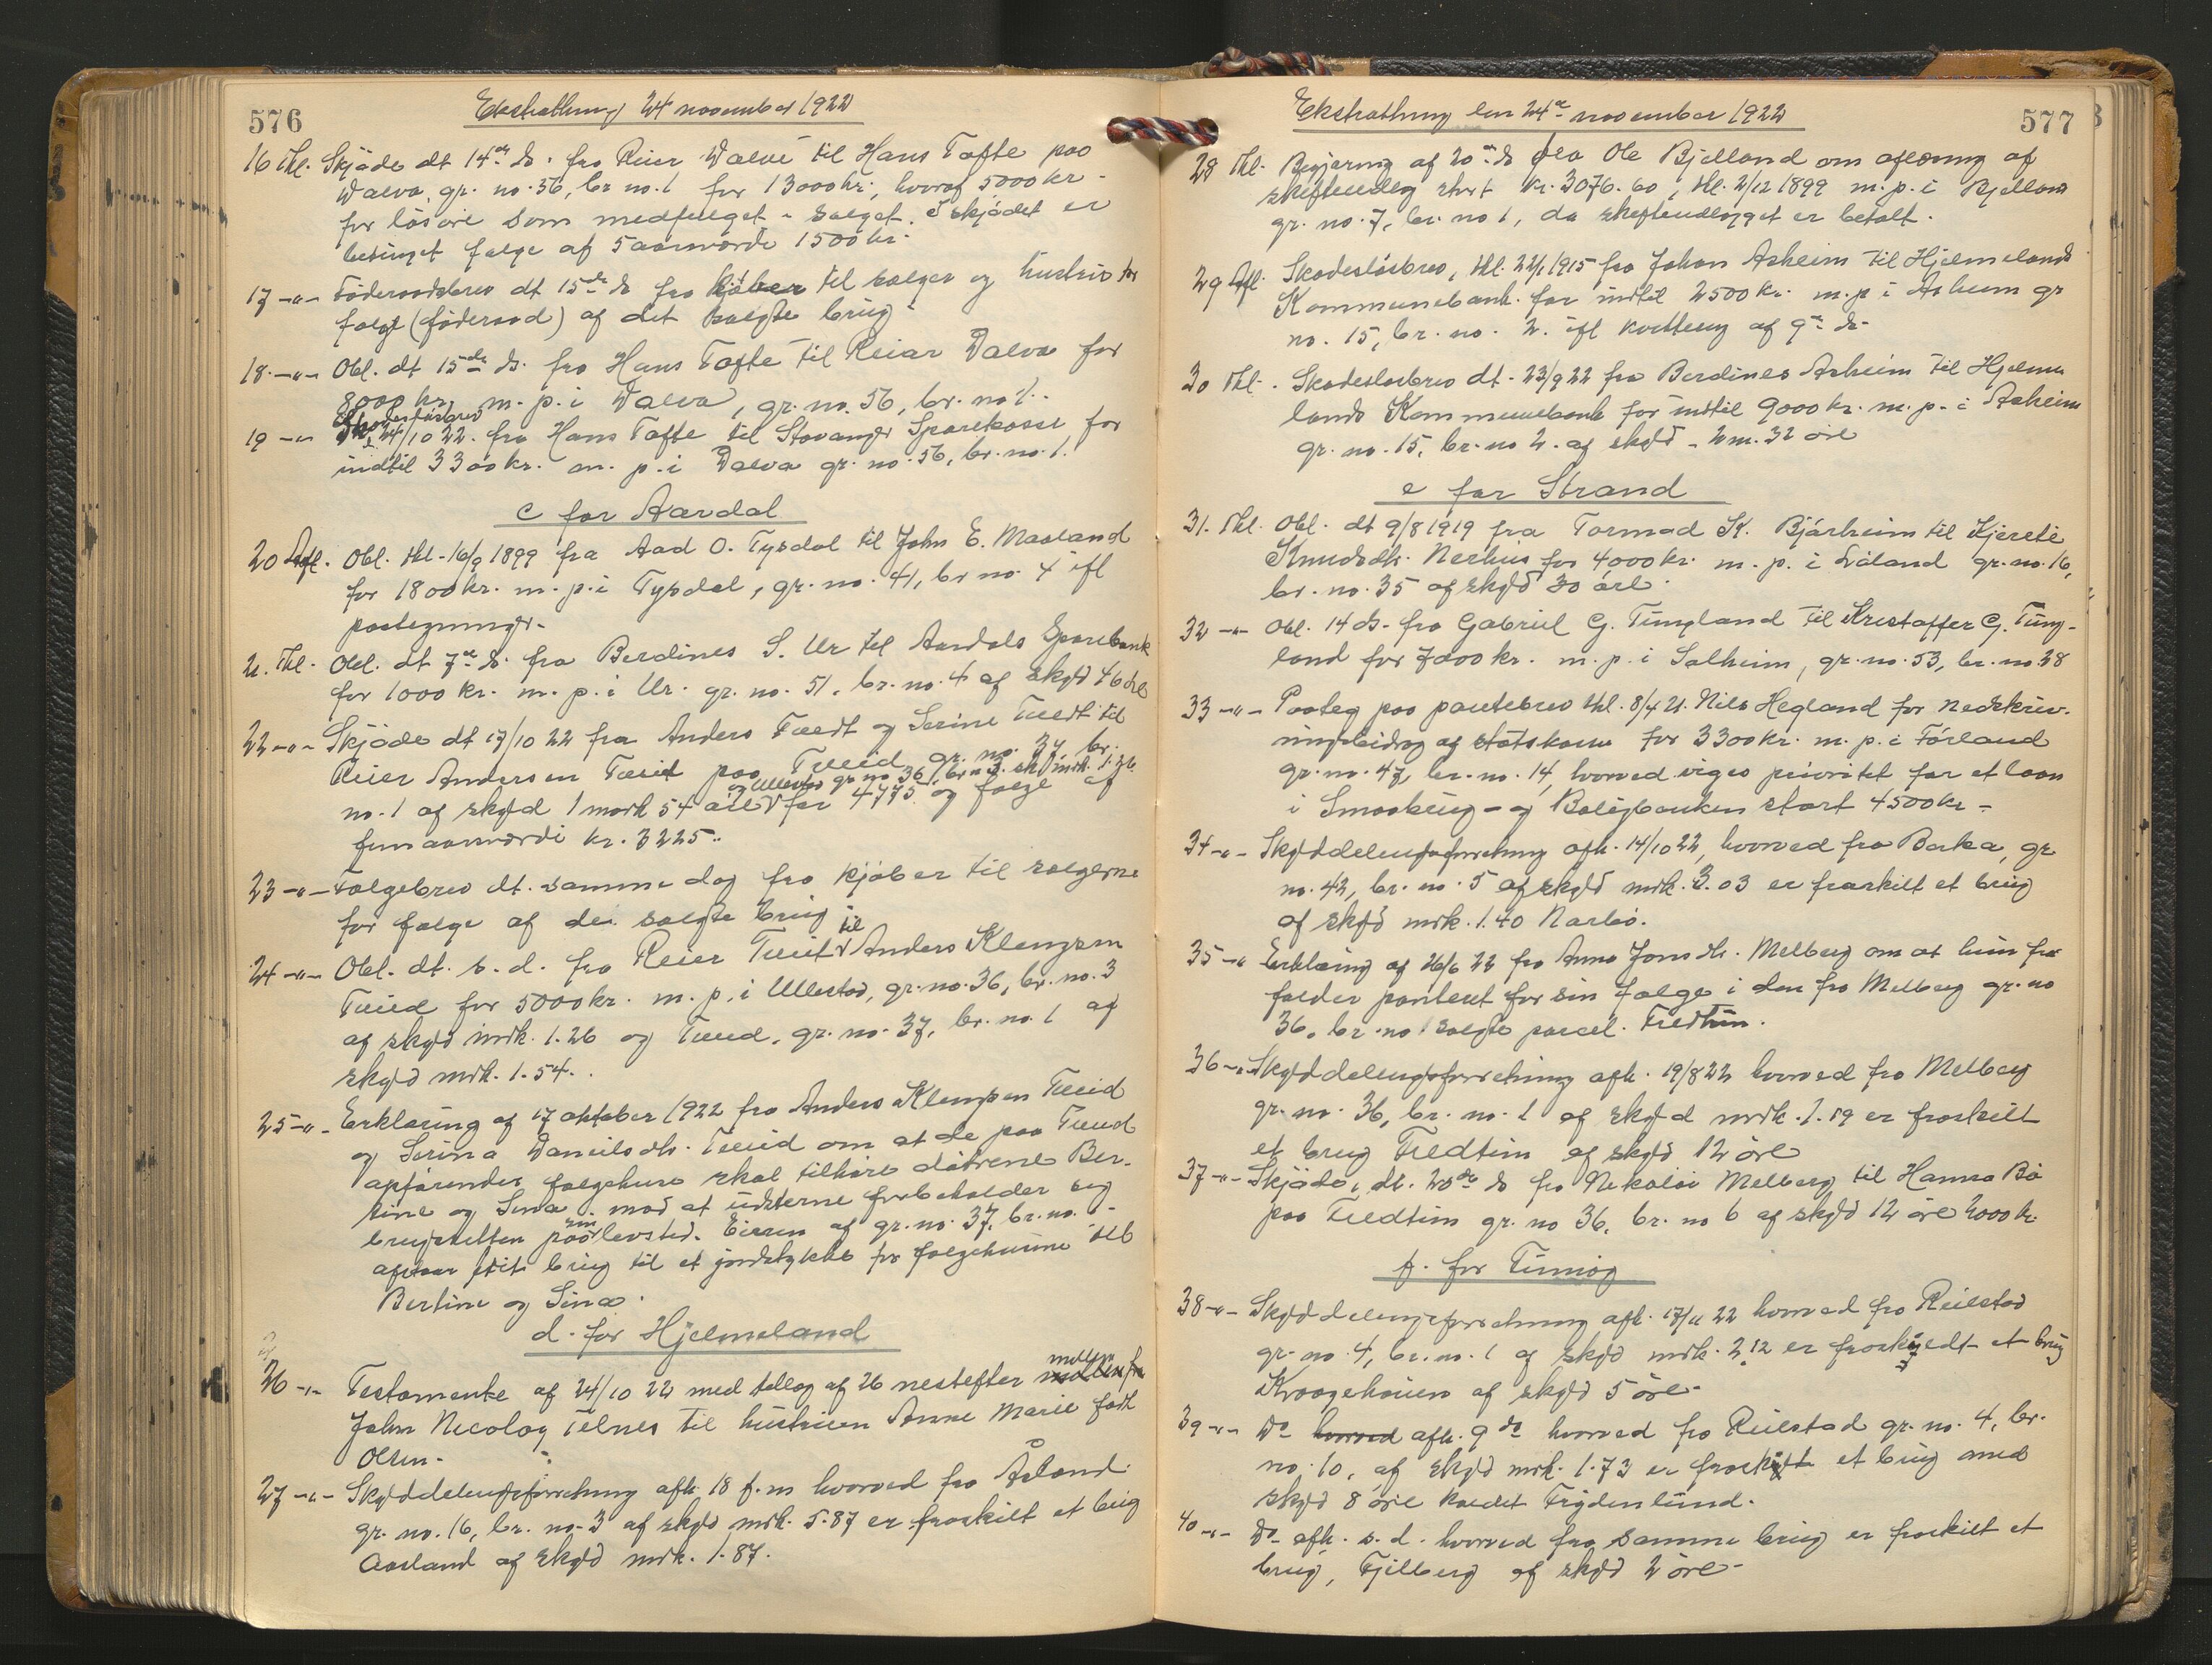 576
Ekstrathing 24 november 1922
16 thl. Skjöde dt 14de ds. fra Reier Valve til Hans Tofte paa
Valva, gr. no. 56, br no. 1 for 13000 kr, hvoraf 5000 kr.
for lösöre som medfölget i salget. I skjödet er
betinget følge af 5 aarsværdi 1500 kr.
17 -"- Föderaadsbrev dt 15de ds fra kjøber til sælger og hustru for
følge (föderaad) af det solgte brug.
18 -"- Obl. dt 15de ds. fra Hans Tofte til Reiar Valva for
8000 kr. m. p. i Valva, gr. no. 56, br. no 1.
19 -"- Skadeslösbrev 24/10 22 fra Hans Tofte til Stavanger Sparekasse for
indtil 3300 kr. m. p. i Valva gr. no. 56, br. no. 1.
c for Aardal
20 Afl. Obl. thl. 16/9 1899 fra Aad O. Tysdal til John E. Maaland
for 1800 kr. m. p. i Tysdal, gr. no. 41, br no. 4 ifl
paategninger.
21. Thl. Obl. dt 7de ds. fra Berdines S. Ur til Aardals Sparebank
for 1000 kr. m. p. i Ur. gr. no. 51, br. no. 4 af skyld 46 öre
22 -"- Skjöde dt 17/10 22 fra Anders Tveidt og Serine Tveidt til
Reier Andersen Tveit paa Tveid gr. no. 37, br.
og Ullestad gr no 36, br n 3. sk. mrk. 1.26
no. 1 af skyld 1 mark 54 øre for 4775 og følge af
fem aarsværdi kr. 3225..
23 -"- Følgebrev dt. samme dag fra kjøber til sælgerne
for følge af de solgte brug
24 -"- Obl. dt. s. d. fra Reier Tveit til Anders Klengsen
Tveid for 5000 kr. m. p. i Ullestad, gr. no. 36, br. no. 3
af skyld mrk. 1.26 og Tveid, gr. no. 37, br. no. 1 af
skyld mrk. 1.54..
25 -"- Erklæring af 17 oktober 1922 fra Anders Klengsen Tveid
og Serina Danielsdtr. Tveid om at de paa Tveid
opførendes følgehuse skal tilhøre døtrene Ber-
tine og Sina mod at utstederne forbeholder sig
bruksretten paa sin levetid. Eieren af gr. no. 37, br. no. 1
afstaar frit brug til et jordstykke for følgehusene til
Bertine og Sina.
d. for Hjelmeland
26 -"- Testamente af 24/10 22 med tillæg af 26 nestefter mellem
John Necolay Telnes til hustruen Anne Marie født
Olsen.
27 -"- Skylddelingsforretning afh. 18 f. m hvorved fra Åsland
gr. no. 16, br. no. 3 af skyld mrk. 5.87 er fraskilt et brug
Aasland af skyld mrk. 1.87.
Ekstrathing den 24de november 1922
577
28 thl. Begjæring af 20de ds fra Ole Bjelland om aflæsning af
skifteudlæg stort kr. 3076.60, thl. 2/12 1899 m. p. i Bjelland
gr. no. 7, br. no 1, da skifteudlægget er betalt.
29 Afl. Skadeslösbrev, thl. 22/1 1915 fra Johan Asheim til Hjelmelands
Kommunebank for indtil 2500 kr. m. p i Asheim gr
no. 15, br. no. 2. ifl kvittering af 9de ds.
30 thl. Skadeslösbrev dt. 23/9 22 fra Berdines Asheim til Hjelme
lands Kommunebank for indtil 9000 kr. m. p. i Asheim
gr. no. 15, br. no 2. af skyld 2 m. 32 öre
e for Strand
31. Thl. Obl. dt 9/8 1919 fra Tormod K. Bjørheim til Kjerste
Knudsdtr. Nerhus for 4000 kr. m. p. i gr. no. 16,
br. no. 35 af skyld 30 øre.
32 -"- Obl. 14 ds. fra Gabriel G. Tungland til Kristoffer G. Tung-
land for 7000 kr. m. p. i Solheim, gr. no. 53, br. no 38
33 -"- Paateg paa pantebrev thl. 8/4 21. Nils Hegland for nedskriv-
ningsbidrag af statskassen for 3300 kr. m. p. i Førland
gr. no. 47, br. no. 14, hvorved viges prioritet for et laan
i Smaabrug- og Boligbanken stort 4500 kr.
34 -"- Skylddelingsforretning afh. 14/10 22, hvorved fra Barka, gr
no. 42, br. no. 5 af skyld mrk. 3.03 er fraskilt et brug
af skyld mrk. 1.40 Narbø.
35 -"- Erklæring af 26/6 22 fra Anna Jonsdtr. Melberg om at hun fra
falder panteret for sin følge i den fra Melberg gr. no
36, br. no 1 solgte parcel. Fredtun.
36 -"- Skylddelingsforretning afh. 19/8 22 hvorved fra Melberg
gr. no. 36, br. no. 1 af skyld mrk. 1.19 er fraskilt
et brug Fredtun af skyld 12 öre
37 -"- Skjöde, dt. 20de ds fra Nekolai Melberg til Hanna Bø
paa Fredtun gr. no 36, br. no 6 af skyld 12 öre 2000 kr.
f. for Finnøy
38 -"- Skylddelingsforretning afh. 17/11 22 hvorved fra Reilstad
gr. no. 4, br. no. 1 af skyld mrk. 2.12 er fraskyldt et brug
Kraagehauen af skyld 5 öre.
39 -"- Do hvorved afh. 9 ds hvorved fra Reilstad gr. no. 4, br.
no. 10, af skyld mrk. 1.73 er fraskilt et brug med
skyld 8 öre kaldet Frydenlund.
40 -"- Do afh. s. d. hvorved fra samme brug er fraskilt et
brug, Fjelberg af skyld 2 öre.